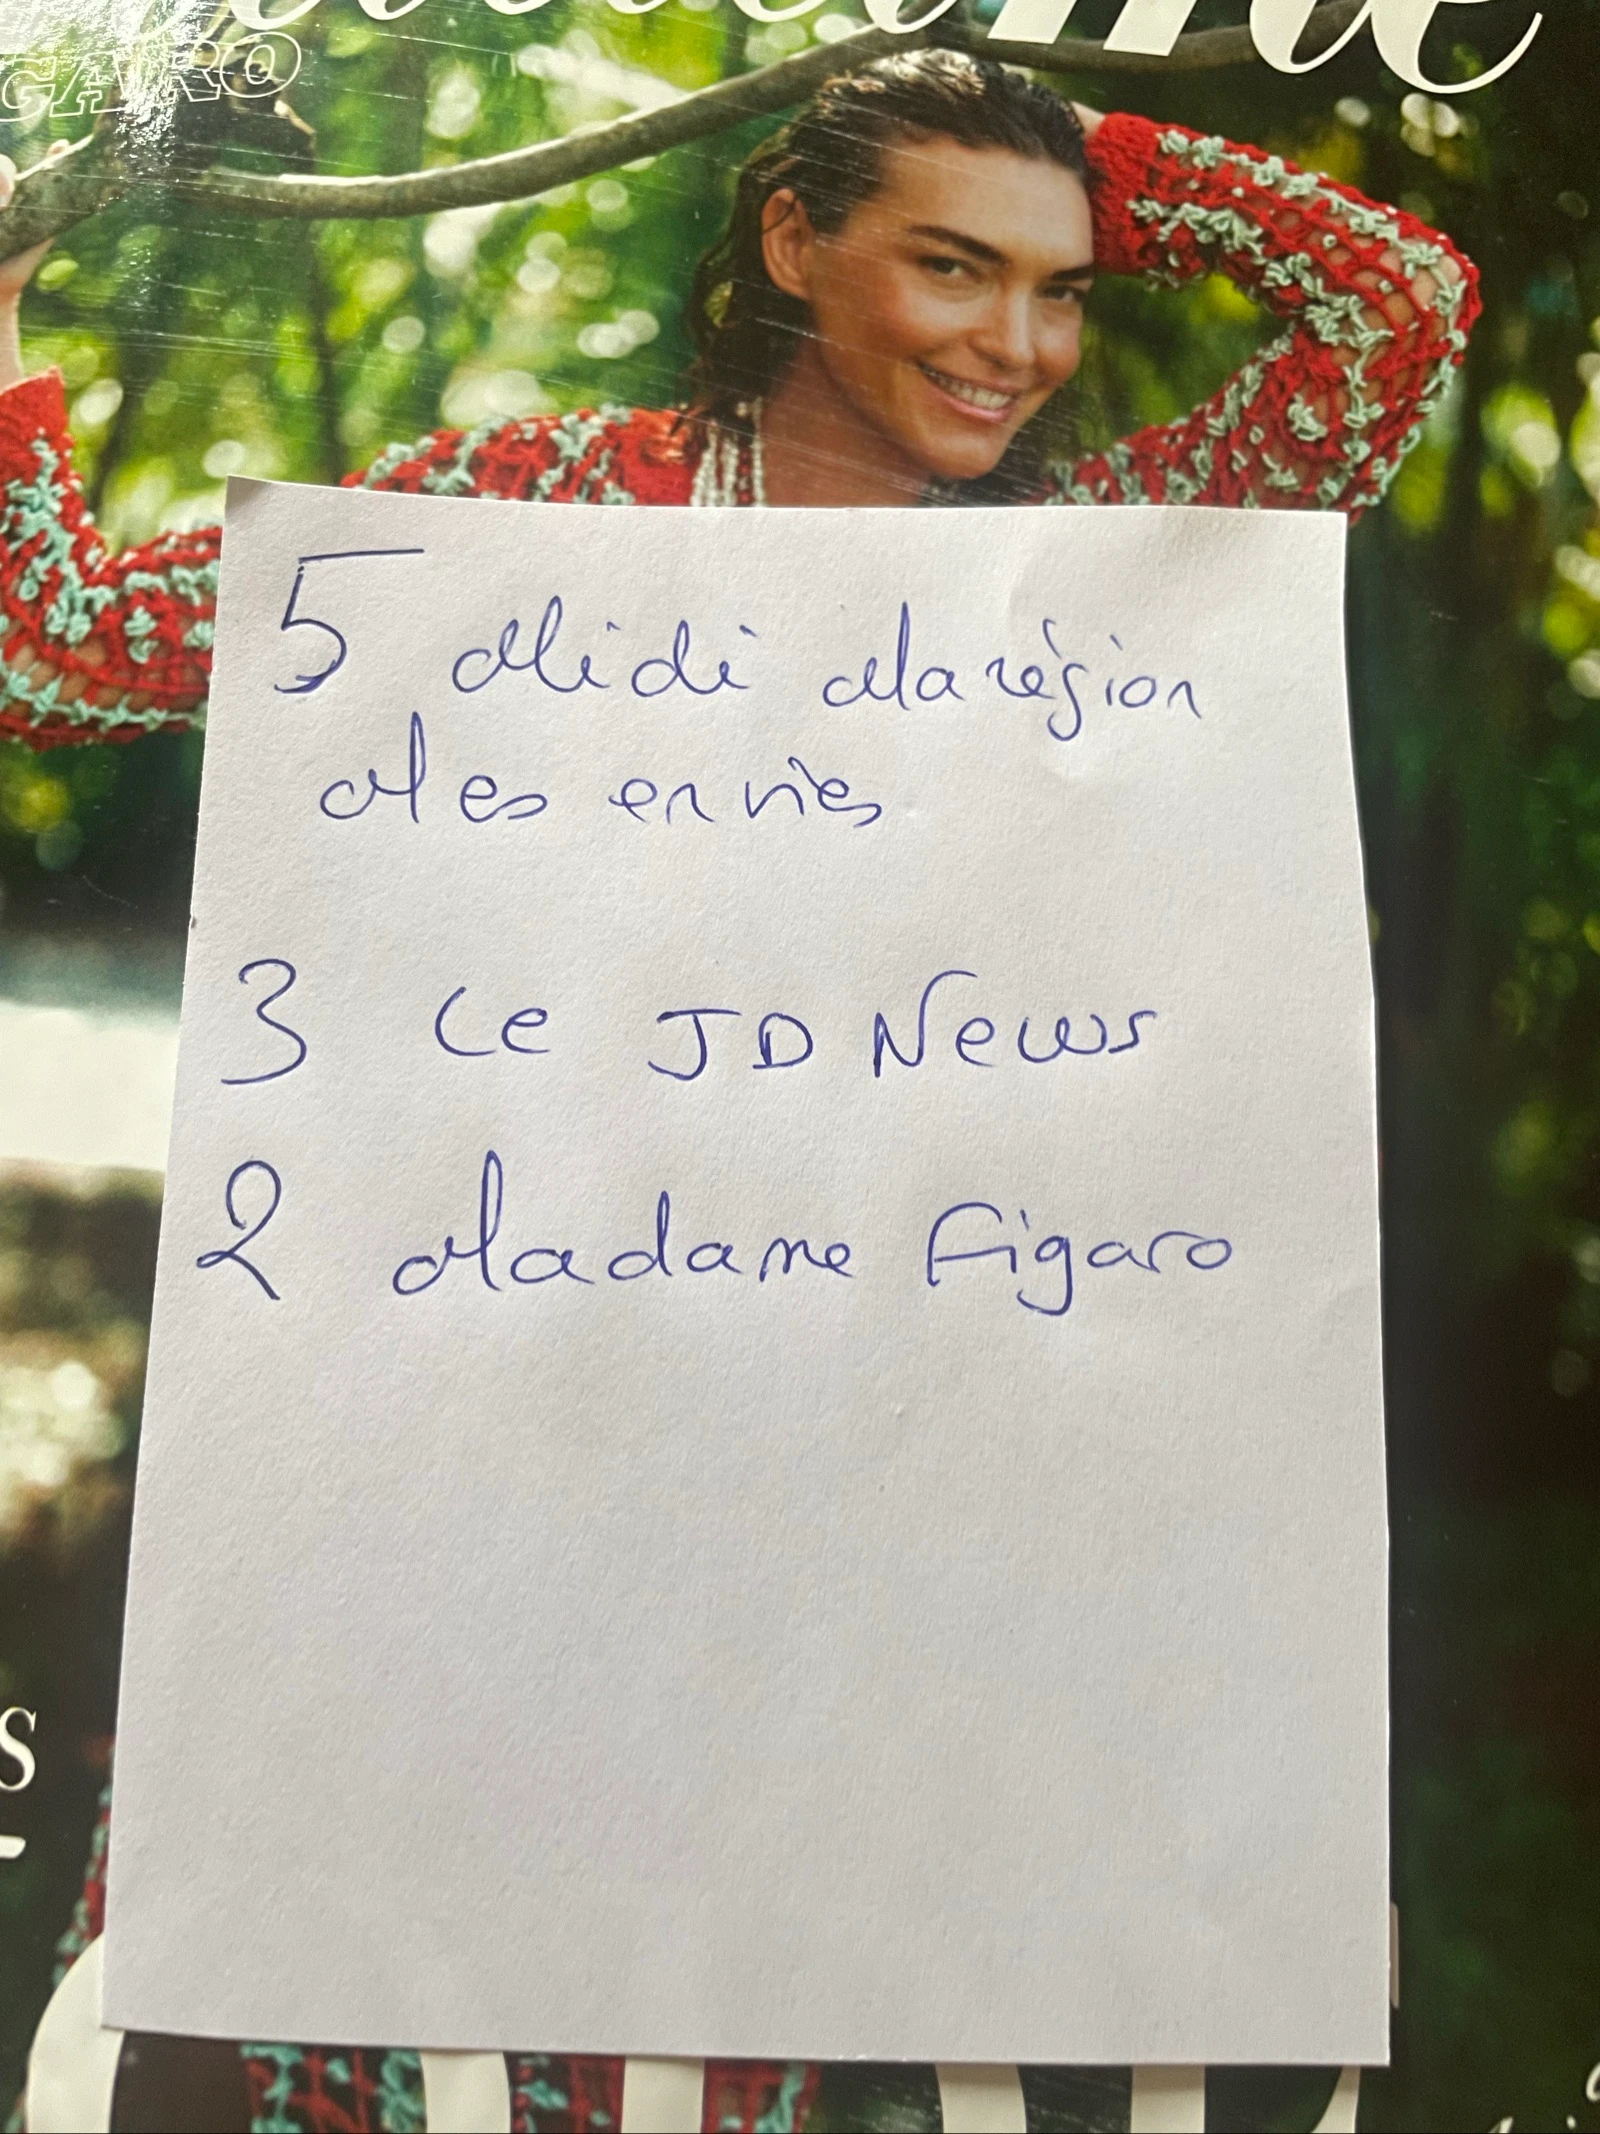 GARO
5 Midi Ma région
Mes envies
3 Le JD News
2 Madame Figaro
S